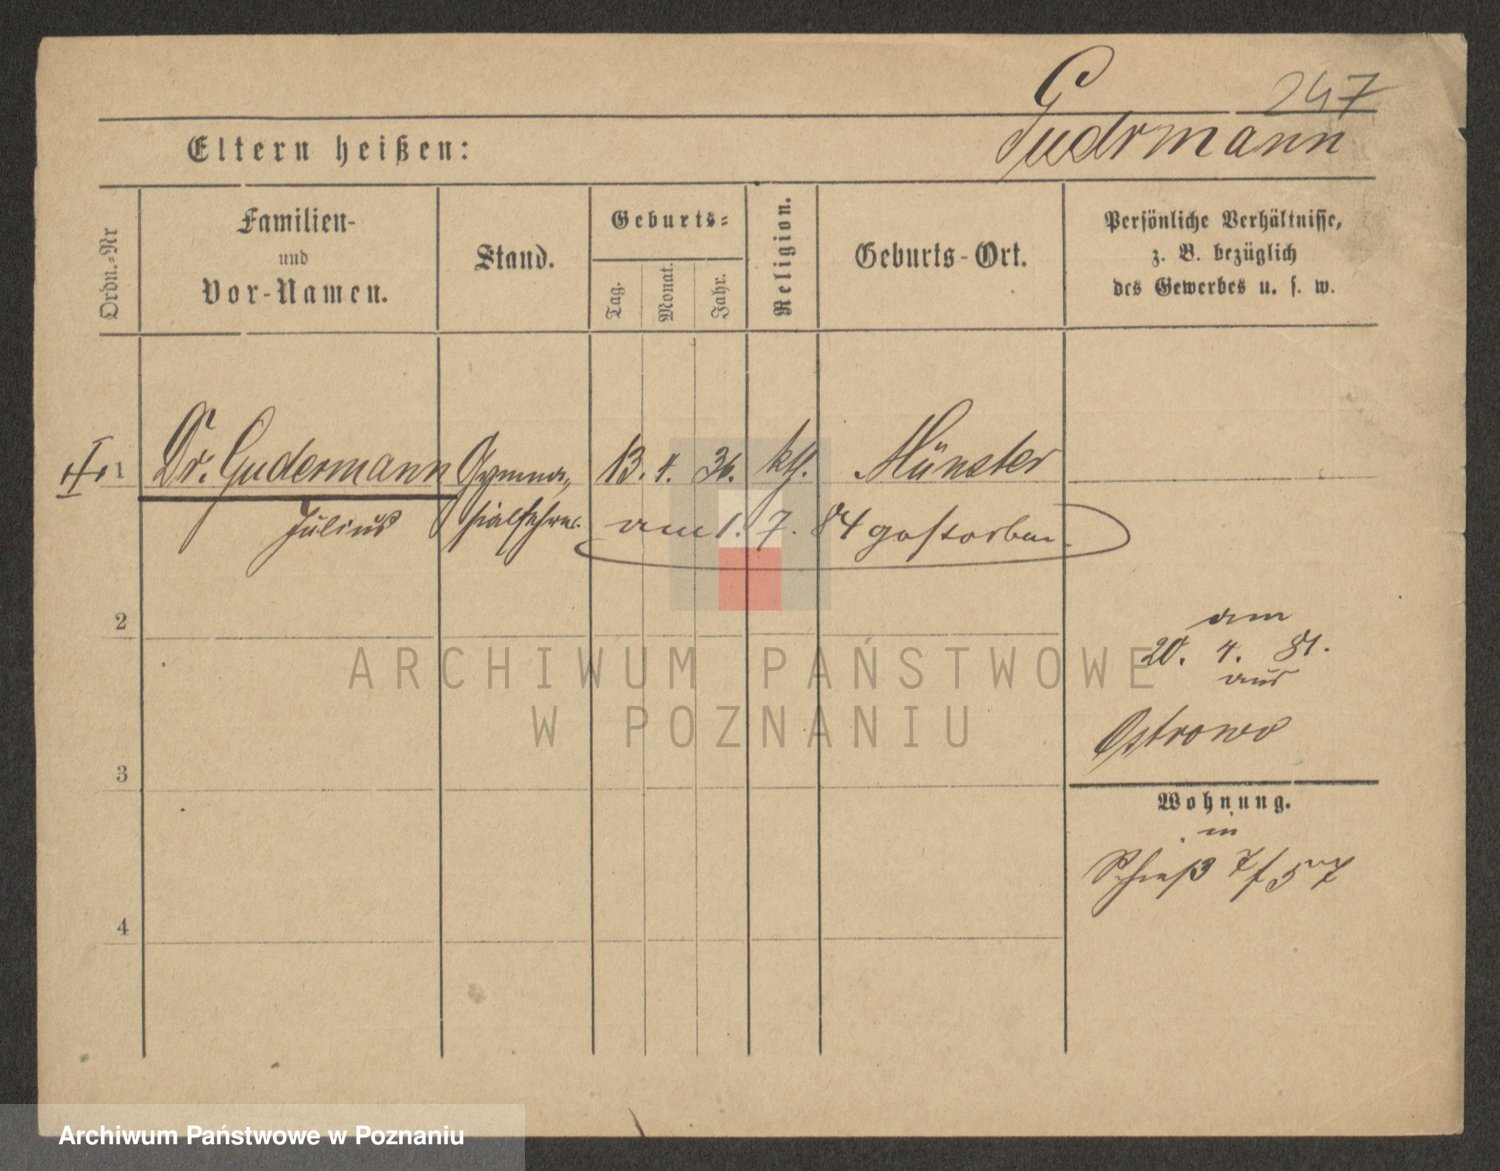 G
247
Gudrmann
Eltern heißen:
Ordn.-Nr
Familien-
und
Vor-Namen.
Stand.
Geburts-
Tag.
Monat.
Jahr.
Religion.
Geburts-Ort.
Persönliche Verhältnisse,
z. B. bezüglich
des Gewerbes u. s. w.
1
Dr. Gudermann Gymna- 13. 4. 36. kth. Münster
Julius siallehrer am 1. 7. 84 gestorben
2
am
20. 4. 81.
aus
Ostrowo
3
Wohnung.
in
Schieß 7/57
4
ARCHIWUM PAŃSTWOWE
W POZNANIU
Archiwum Państwowe w Poznaniu